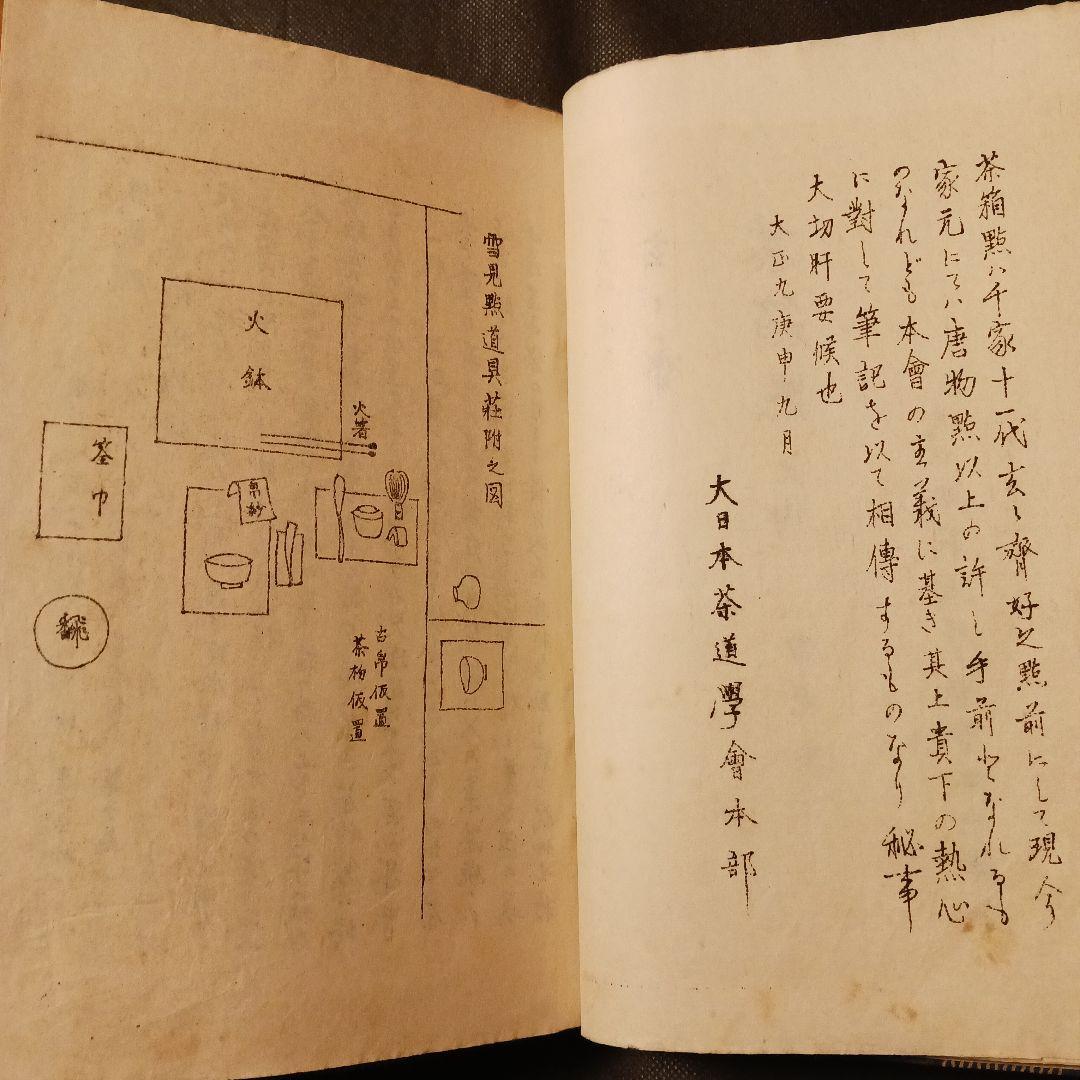 茶箱點ハ千家十一代玄々齋好之點前にして現今
家元にてハ唐物點以上の許し手前となれるも
のなれども本會の主義に基き其上貴下の熱心
に對して筆記を以て相傳するものなり秘事
大切肝要候也
大正九庚申九月
大日本茶道學會本部
雪見點道具莊附之図
火鉢
火箸
帛紗
巾
古帛仮置
茶杓仮置